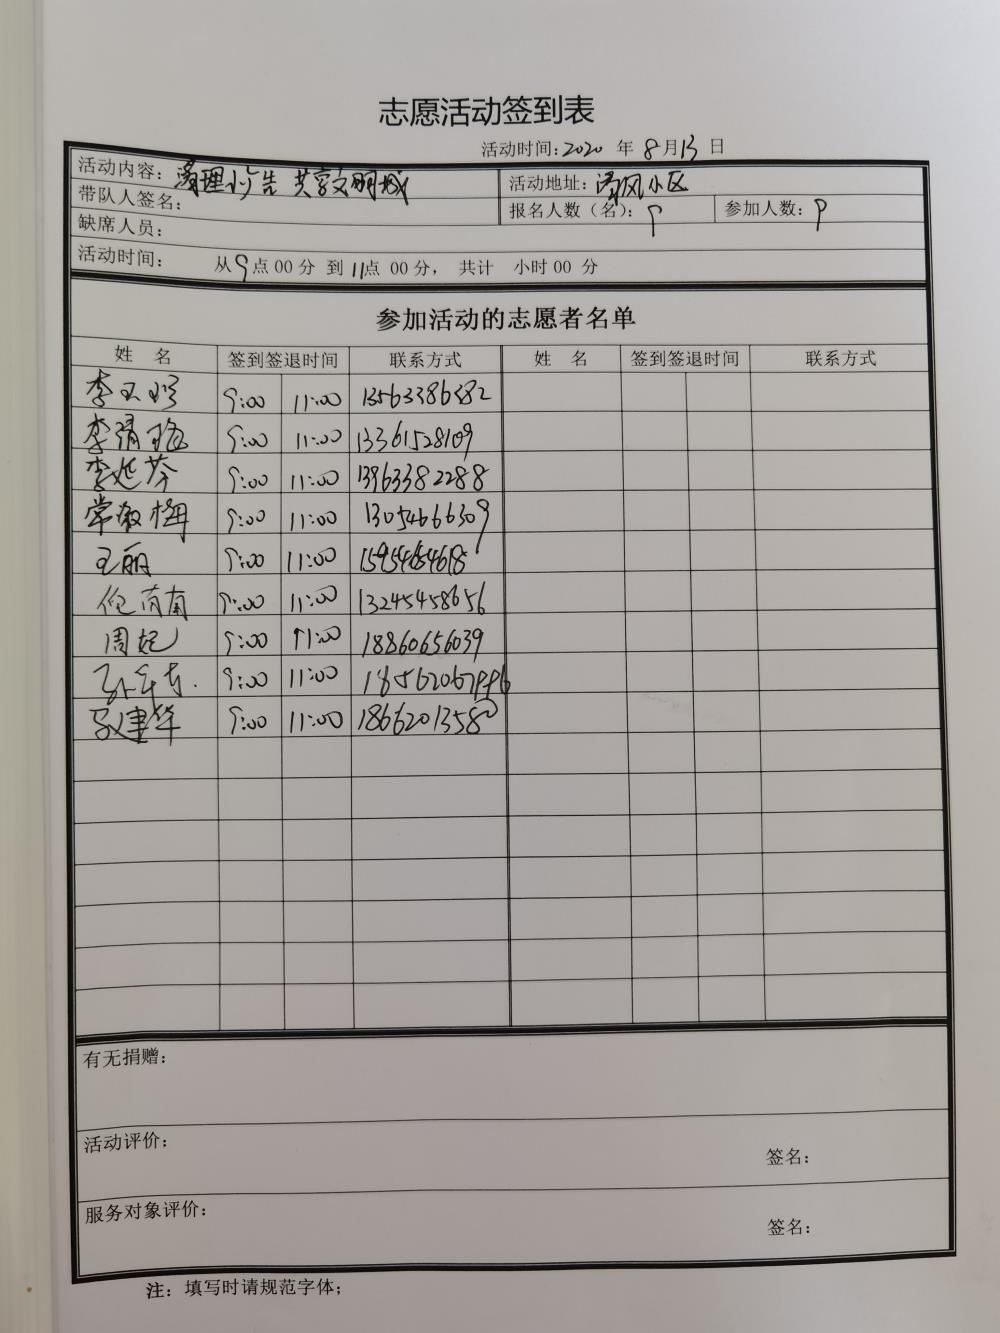 志愿活动签到表
活动时间：2020 年 8月13 日
活动内容：清理小广告 共享文明城 活动地址：清风小区
带队人签名： 报名人数（名）：9 参加人数：9
缺席人员：
活动时间： 从9点00分 到11点 00分， 共计 小时00 分
参加活动的志愿者名单
姓 名 签到签退时间 联系方式 姓 名 签到签退时间 联系方式
李 9:00 11:00 13563386382
李 9:00 11:00 13361528109
李延芬 9:00 11:00 13963382288
常淑梅 9:00 11:00 13054666309
王丽 9:00 11:00
9:00 11:00 13245458656
周妃 9:00 11:00 18860656039
9:00 11:00
建华 9:00 11:00 18662013580
有无捐赠：
活动评价：
签名：
服务对象评价：
签名：
注：填写时请规范字体；